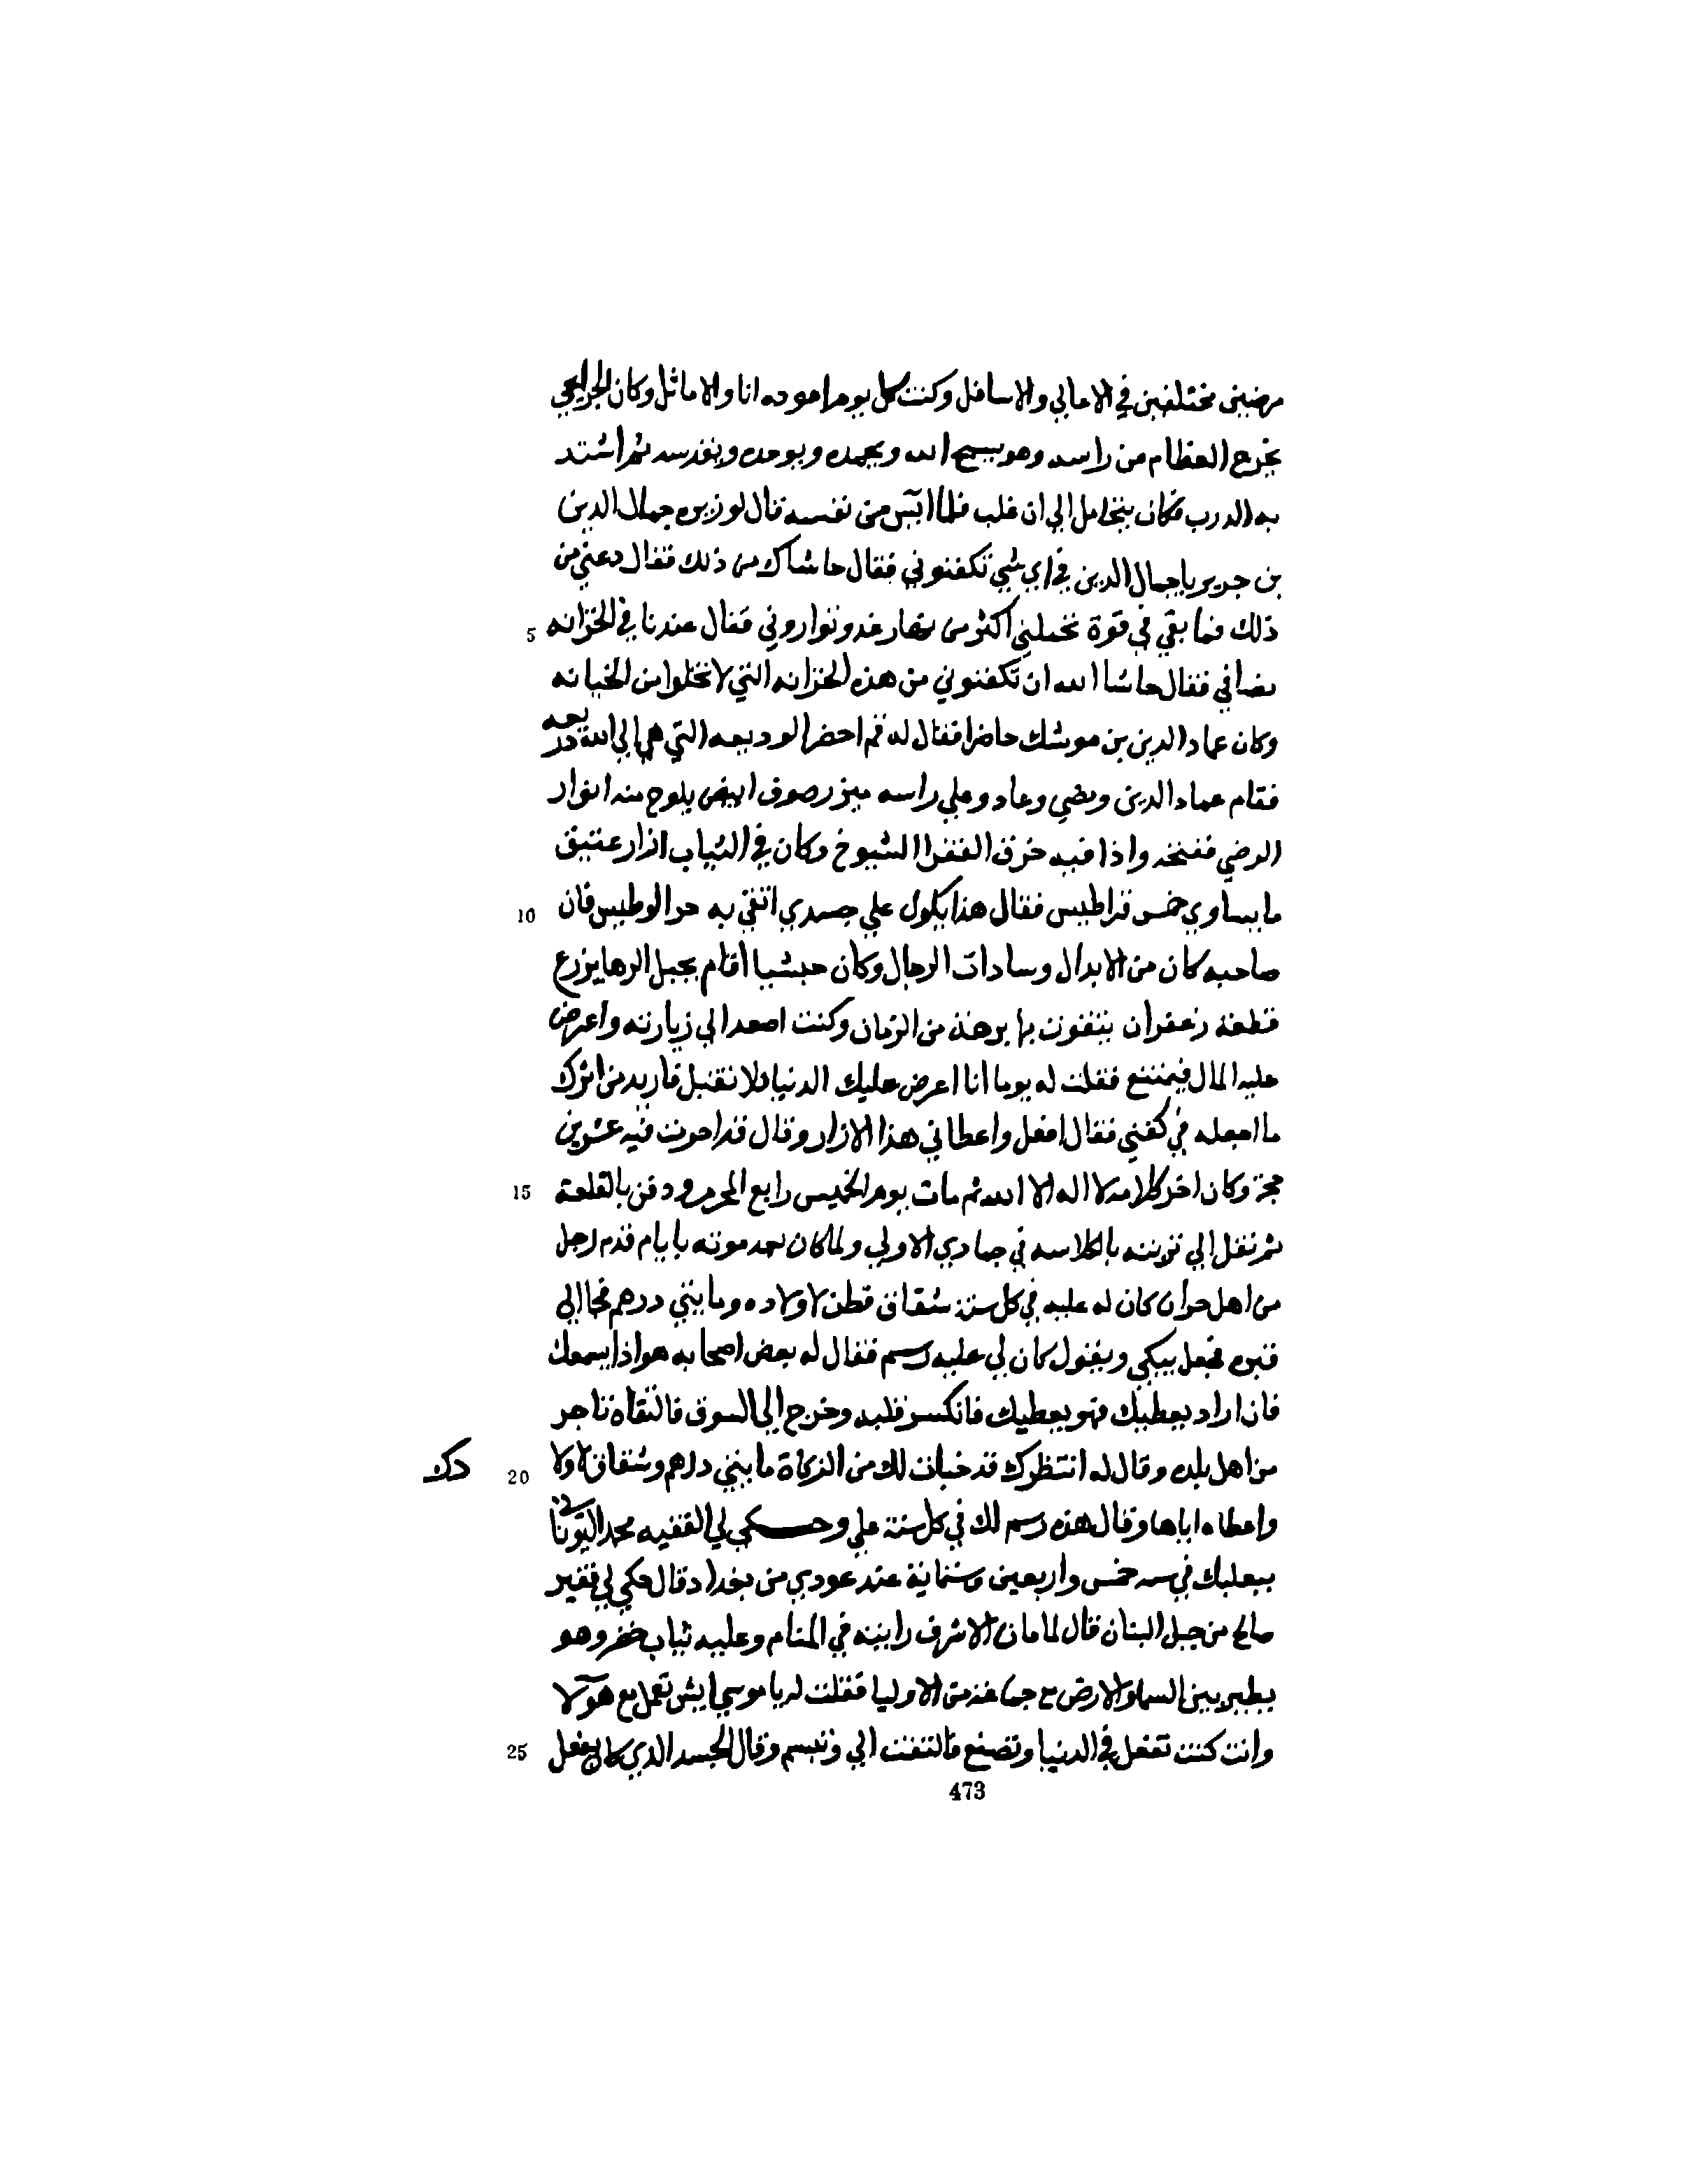 مرضين مختلفين في الاعالي والاسافل وكنت كل يوم اعوده انا والاماثل وكان الجرايحي
يخرج العظام من راسه وهو يسبح الله ويحمده ويوحده ويقدسه ثم اشتد
به الدرب فكان يتحامل الي ان غلب فلما ايس من نفسه قال لوزيره جمال الدين
بن جرير يا جمال الدين في اي شي تكفنوني فقال حاشاك من ذلك فقال دعني من
ذلك فما بقي في قوة تحملني اكثر من نهار غد وتواروني فقال عندنا في الخزانه 5
نصافي فقال حاشا الله ان تكفنوني من هذه الخزانه التي لا تخلوا من الخيانه
وكان عماد الدين بن موسك حاضرا فقال له قم احضر الوديعه التي هي الي الله ذريعه
فقام عماد الدين ومضي وعاد وعلي راسه ميزر صوف ابيض يلوح منه انوار
الرضي ففتحه واذا فيه خرق الفقرا الشيوخ وكان في الثياب ازار عتيق
ما يساوي خمس قراطيس فقال هذا يكون علي جسدي اتقي به حر الوطيس فان 10
صاحبه كان من الابدال وسادات الرجال وكان حبشيا اقام بجبل الرها يزرع
قطعة زعفران يتقوت بها برهة من الزمان وكنت اصعد الي زيارته واعرض
عليه المال فيمتنع فقلت له يوما انا اعرض عليك الدنيا فلا تقبل فاريد من اثرك
ما اجعله في كفني فقال افعل واعطاني هذا الازار وقال قد احرمت فيه عشرين
حجة وكان اخر كلامه لا اله الا الله ثم مات يوم الخميس رابع المحرم ودفن بالقلعة 15
ثم نقل الي تربته بالكلاسه في جمادي الاولي ولما كان بعد موته بايام قدم رجل
من اهل حران كان له عليه في كل سنة شقاق قطن لاولاده ومايتي درهم فجا الي
قبره فجعل يبكي ويقول كان لي عليه رسم فقال له بعض اصحابه هو اذا يسمعك
فان اراد يعطيك فهو يعطيك فانكسر قلبه وخرج الي السوق فالتقاه تاجر
من اهل بلده وقال له انتظرك قد خبات لك من الزكاة مايتي درهم وشقاق لاولا 20 دك
واعطاه اياها وقال هذه رسم لك في كل سنة علي وحكي لي الفقيه محمد اليونيني
ببعلبك في سنه خمس واربعين وستماية عند عودي من بغداد قال حكي لي فقير
صالح من جبل البنان قال لما مات الاشرف رايته في المنام وعليه ثياب خضر وهو
يطير بين السما والارض مع جماعة من الاوليا فقلت له يا موسي ايش تعمل مع هولا
وانت كنت تفعل في الدنيا وتصنع فالتفت الي وتبسم وقال الجسد الذي كان يفعل 25
473